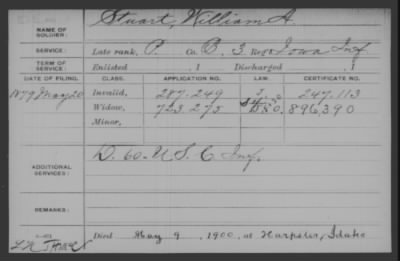 NAME OF SOLDIER: Stuart, William H.
SERVICE: Late rank, P. Co. B, 3 Reg't Iowa Inf.
TERM OF SERVICE: Enlisted , 1 Discharged , 1
DATE OF FILING. CLASS. APPLICATION NO. LAW. CERTIFICATE NO.
1879 May 20 Invalid, 287.249 247.113
Widow, 723 275 896,390
Minor,
ADDITIONAL SERVICES: D. 60 - U. S. C. Inf.
REMARKS:
Died May 9, 1900, at Harpster, Idaho